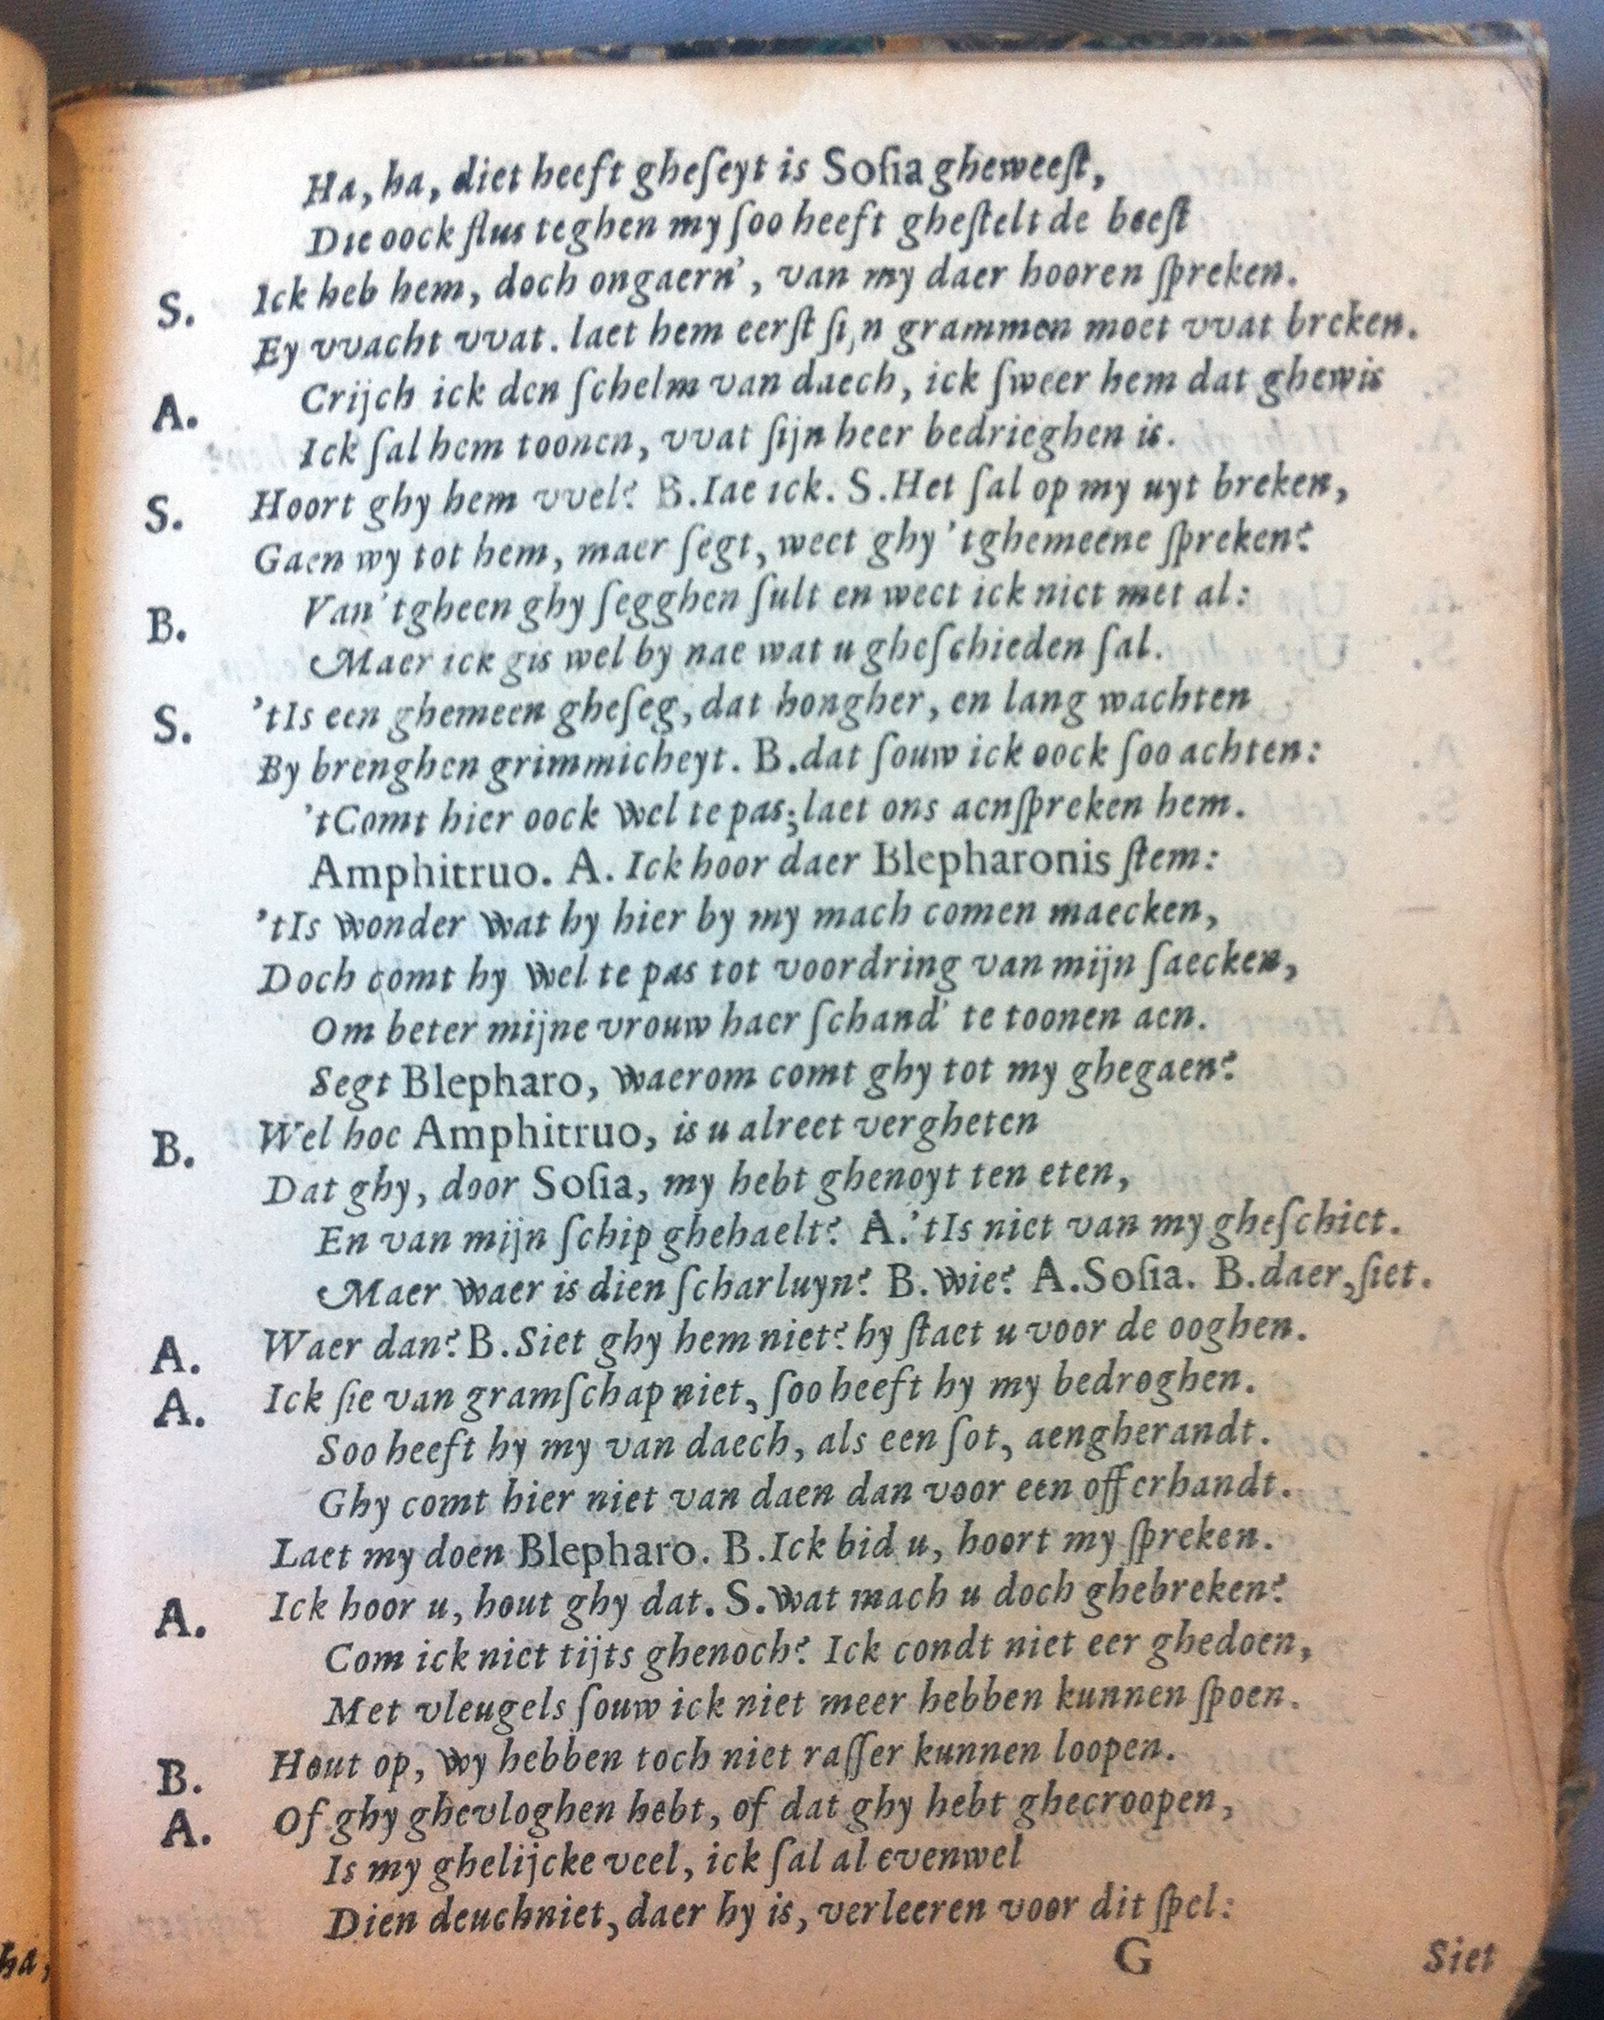 Ha, ha, diet heeft gheſeyt is Soſia gheweeſt,
Die oock flus teghen my ſoo heeft gheſtelt de beeſt
S. Ick heb hem, doch ongaern', van my daer hooren ſpreken.
Ey vvacht vvat. laet hem eerſt ſijn grammen moet vvat breken.
A. Crijch ick den ſchelm van daech, ick ſweer hem dat ghewis
Ick ſal hem toonen, vvat ſijn heer bedrieghen is.
S. Hoort ghy hem vvel? B. Iae ick. S. Het ſal op my uyt breken,
Gaen wy tot hem, maer ſegt, weet ghy 'tghemeene ſpreken?
B. Van 'tgheen ghy ſegghen ſult en weet ick niet met al:
Maer ick gis wel by nae wat u gheſchieden ſal.
S. 'tIs een ghemeen gheſeg, dat hongher, en lang wachten
By brenghen grimmicheyt. B. dat ſouw ick oock ſoo achten:
'tComt hier oock wel te pas; laet ons aenſpreken hem.
Amphitruo. A. Ick hoor daer Blepharonis ſtem:
'tIs wonder wat hy hier by my mach comen maecken,
Doch comt hy wel te pas tot voordring van mijn ſaecken,
Om beter mijne vrouw haer ſchand' te toonen aen.
Segt Blepharo, waerom comt ghy tot my ghegaen?
B. Wel hoe Amphitruo, is u alreet vergheten
Dat ghy, door Soſia, my hebt ghenoyt ten eten,
En van mijn ſchip ghehaelt? A. 'tIs niet van my gheſchiet.
Maer waer is dien ſcharluyn? B. wie? A. Soſia. B. daer, ſiet.
A. Waer dan? B. Siet ghy hem niet? hy ſtaet u voor de ooghen.
A. Ick ſie van gramſchap niet, ſoo heeft hy my bedroghen.
Soo heeft hy my van daech, als een ſot, aengherandt.
Ghy comt hier niet van daen dan voor een offerhandt.
Laet my doen Blepharo. B. Ick bid u, hoort my ſpreken.
A. Ick hoor u, hout ghy dat. S. wat mach u doch ghebreken?
Com ick niet tijts ghenoch? Ick condt niet eer ghedoen,
Met vleugels ſouw ick niet meer hebben kunnen ſpoen.
B. Hout op, wy hebben toch niet raſſer kunnen loopen.
A. Of ghy ghevloghen hebt, of dat ghy hebt ghecroopen,
Is my ghelijcke veel, ick ſal al evenwel
Dien deuchniet, daer hy is, verleeren voor dit ſpel:
G Siet
ha,